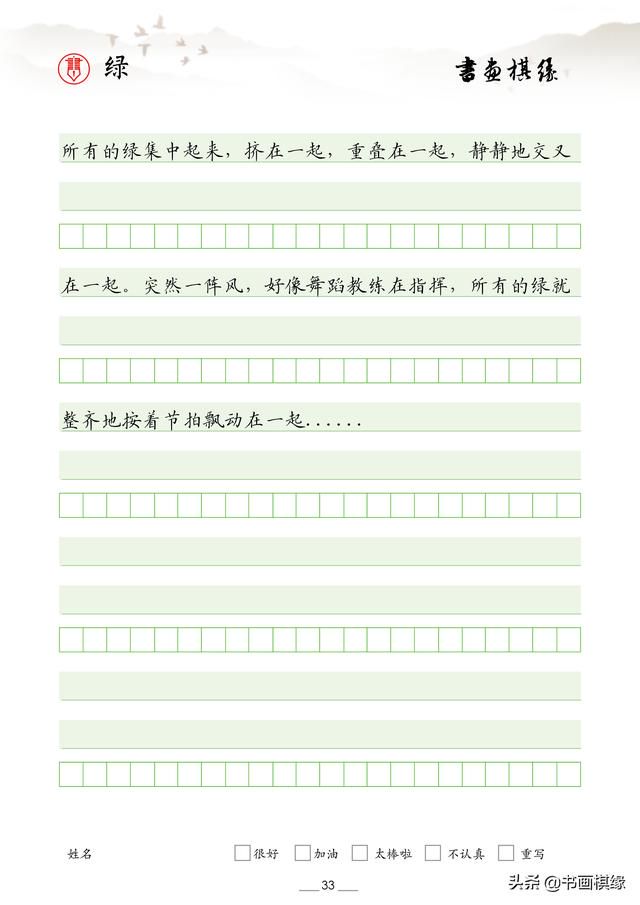 绿
書画棋缘
所有的绿集中起来，挤在一起，重叠在一起，静静地交叉
在一起。突然一阵风，好像舞蹈教练在指挥，所有的绿就
整齐地按着节拍飘动在一起......
姓名 很好 加油 太棒啦 不认真 重写
33
头条 @书画棋缘